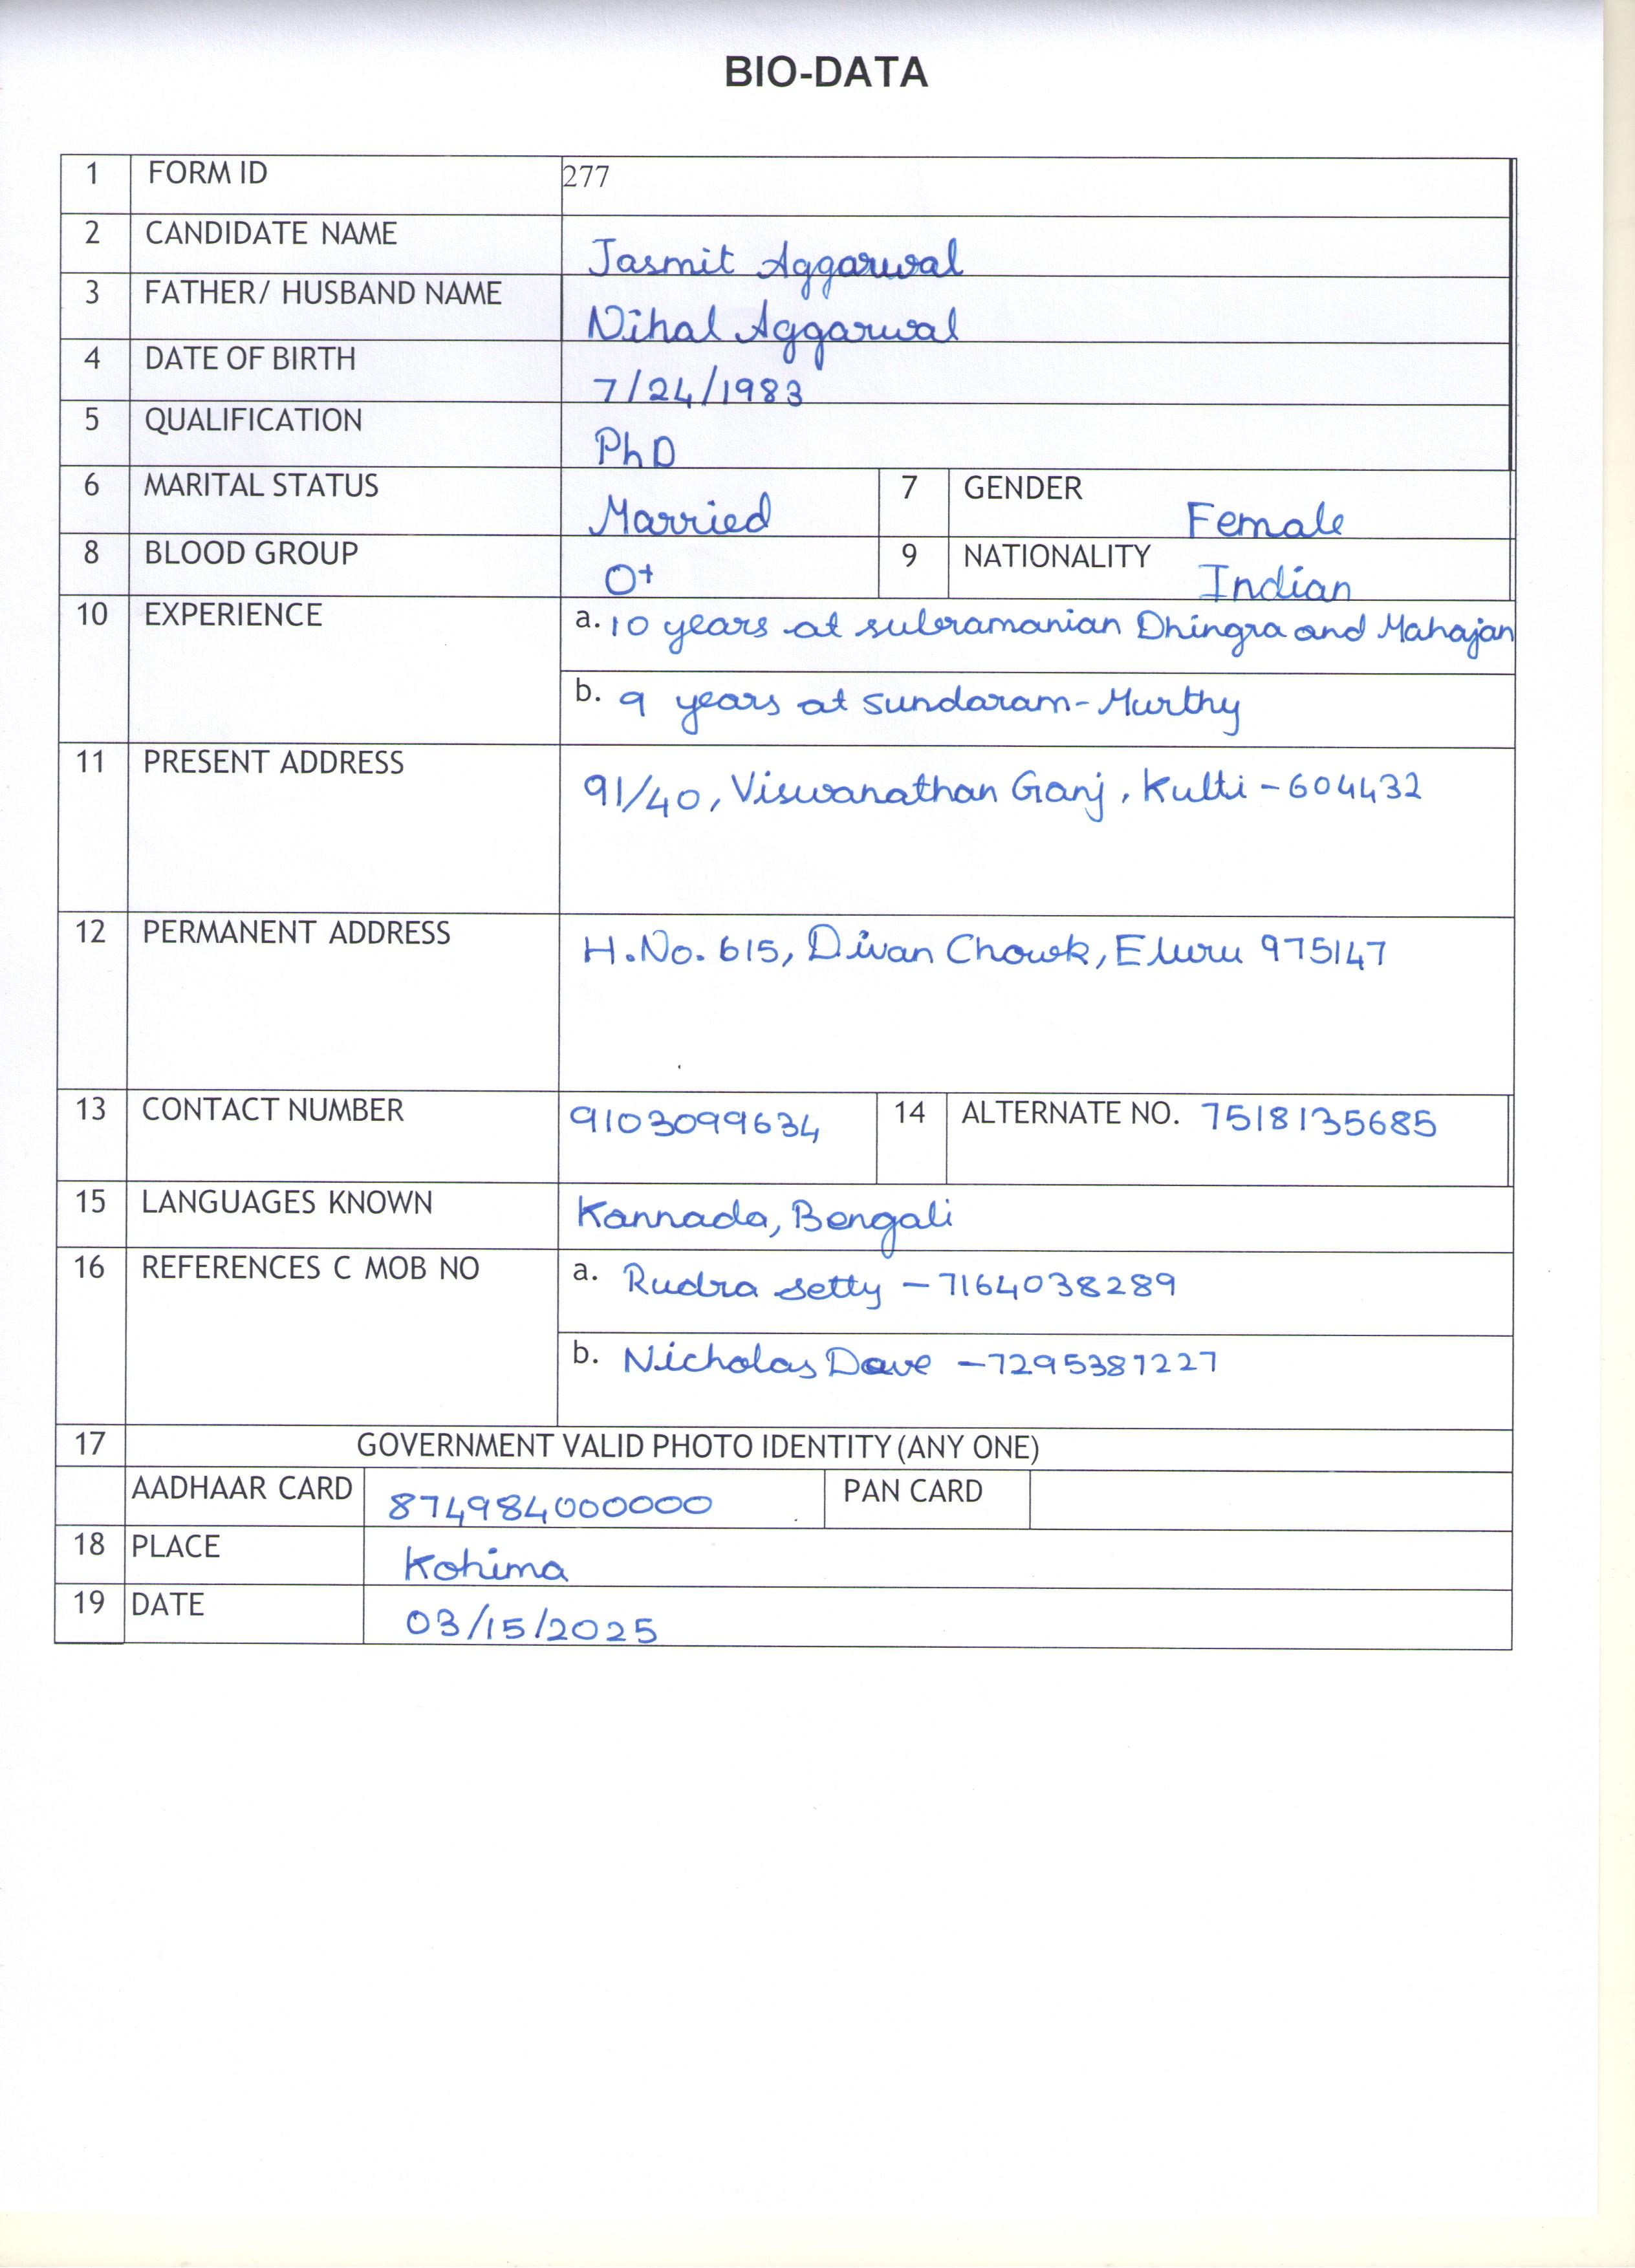 BIO-DATA
1 FORM ID 277
2 CANDIDATE NAME Jasmit Aggarwal
3 FATHER/ HUSBAND NAME Nihal Aggarwal
4 DATE OF BIRTH 7/24/1983
5 QUALIFICATION PhD
6 MARITAL STATUS Married 7 GENDER Female
8 BLOOD GROUP O+ 9 NATIONALITY Indian
10 EXPERIENCE a. 10 years at subramanian Dhingra and Mahajan
b. 9 years at sundaram-Murthy
11 PRESENT ADDRESS 91/40, Viswanathan Ganj, Kulti - 604432
12 PERMANENT ADDRESS H.No. 615, Divan Chowk, Eluru 975147
13 CONTACT NUMBER 9103099634 14 ALTERNATE NO. 7518135685
15 LANGUAGES KNOWN Kannada, Bengali
16 REFERENCES C MOB NO a. Rudra setty - 7164038289
b. Nicholas Dave - 7295387227
17 GOVERNMENT VALID PHOTO IDENTITY (ANY ONE)
AADHAAR CARD 874984000000 PAN CARD
18 PLACE Kohima
19 DATE 03/15/2025